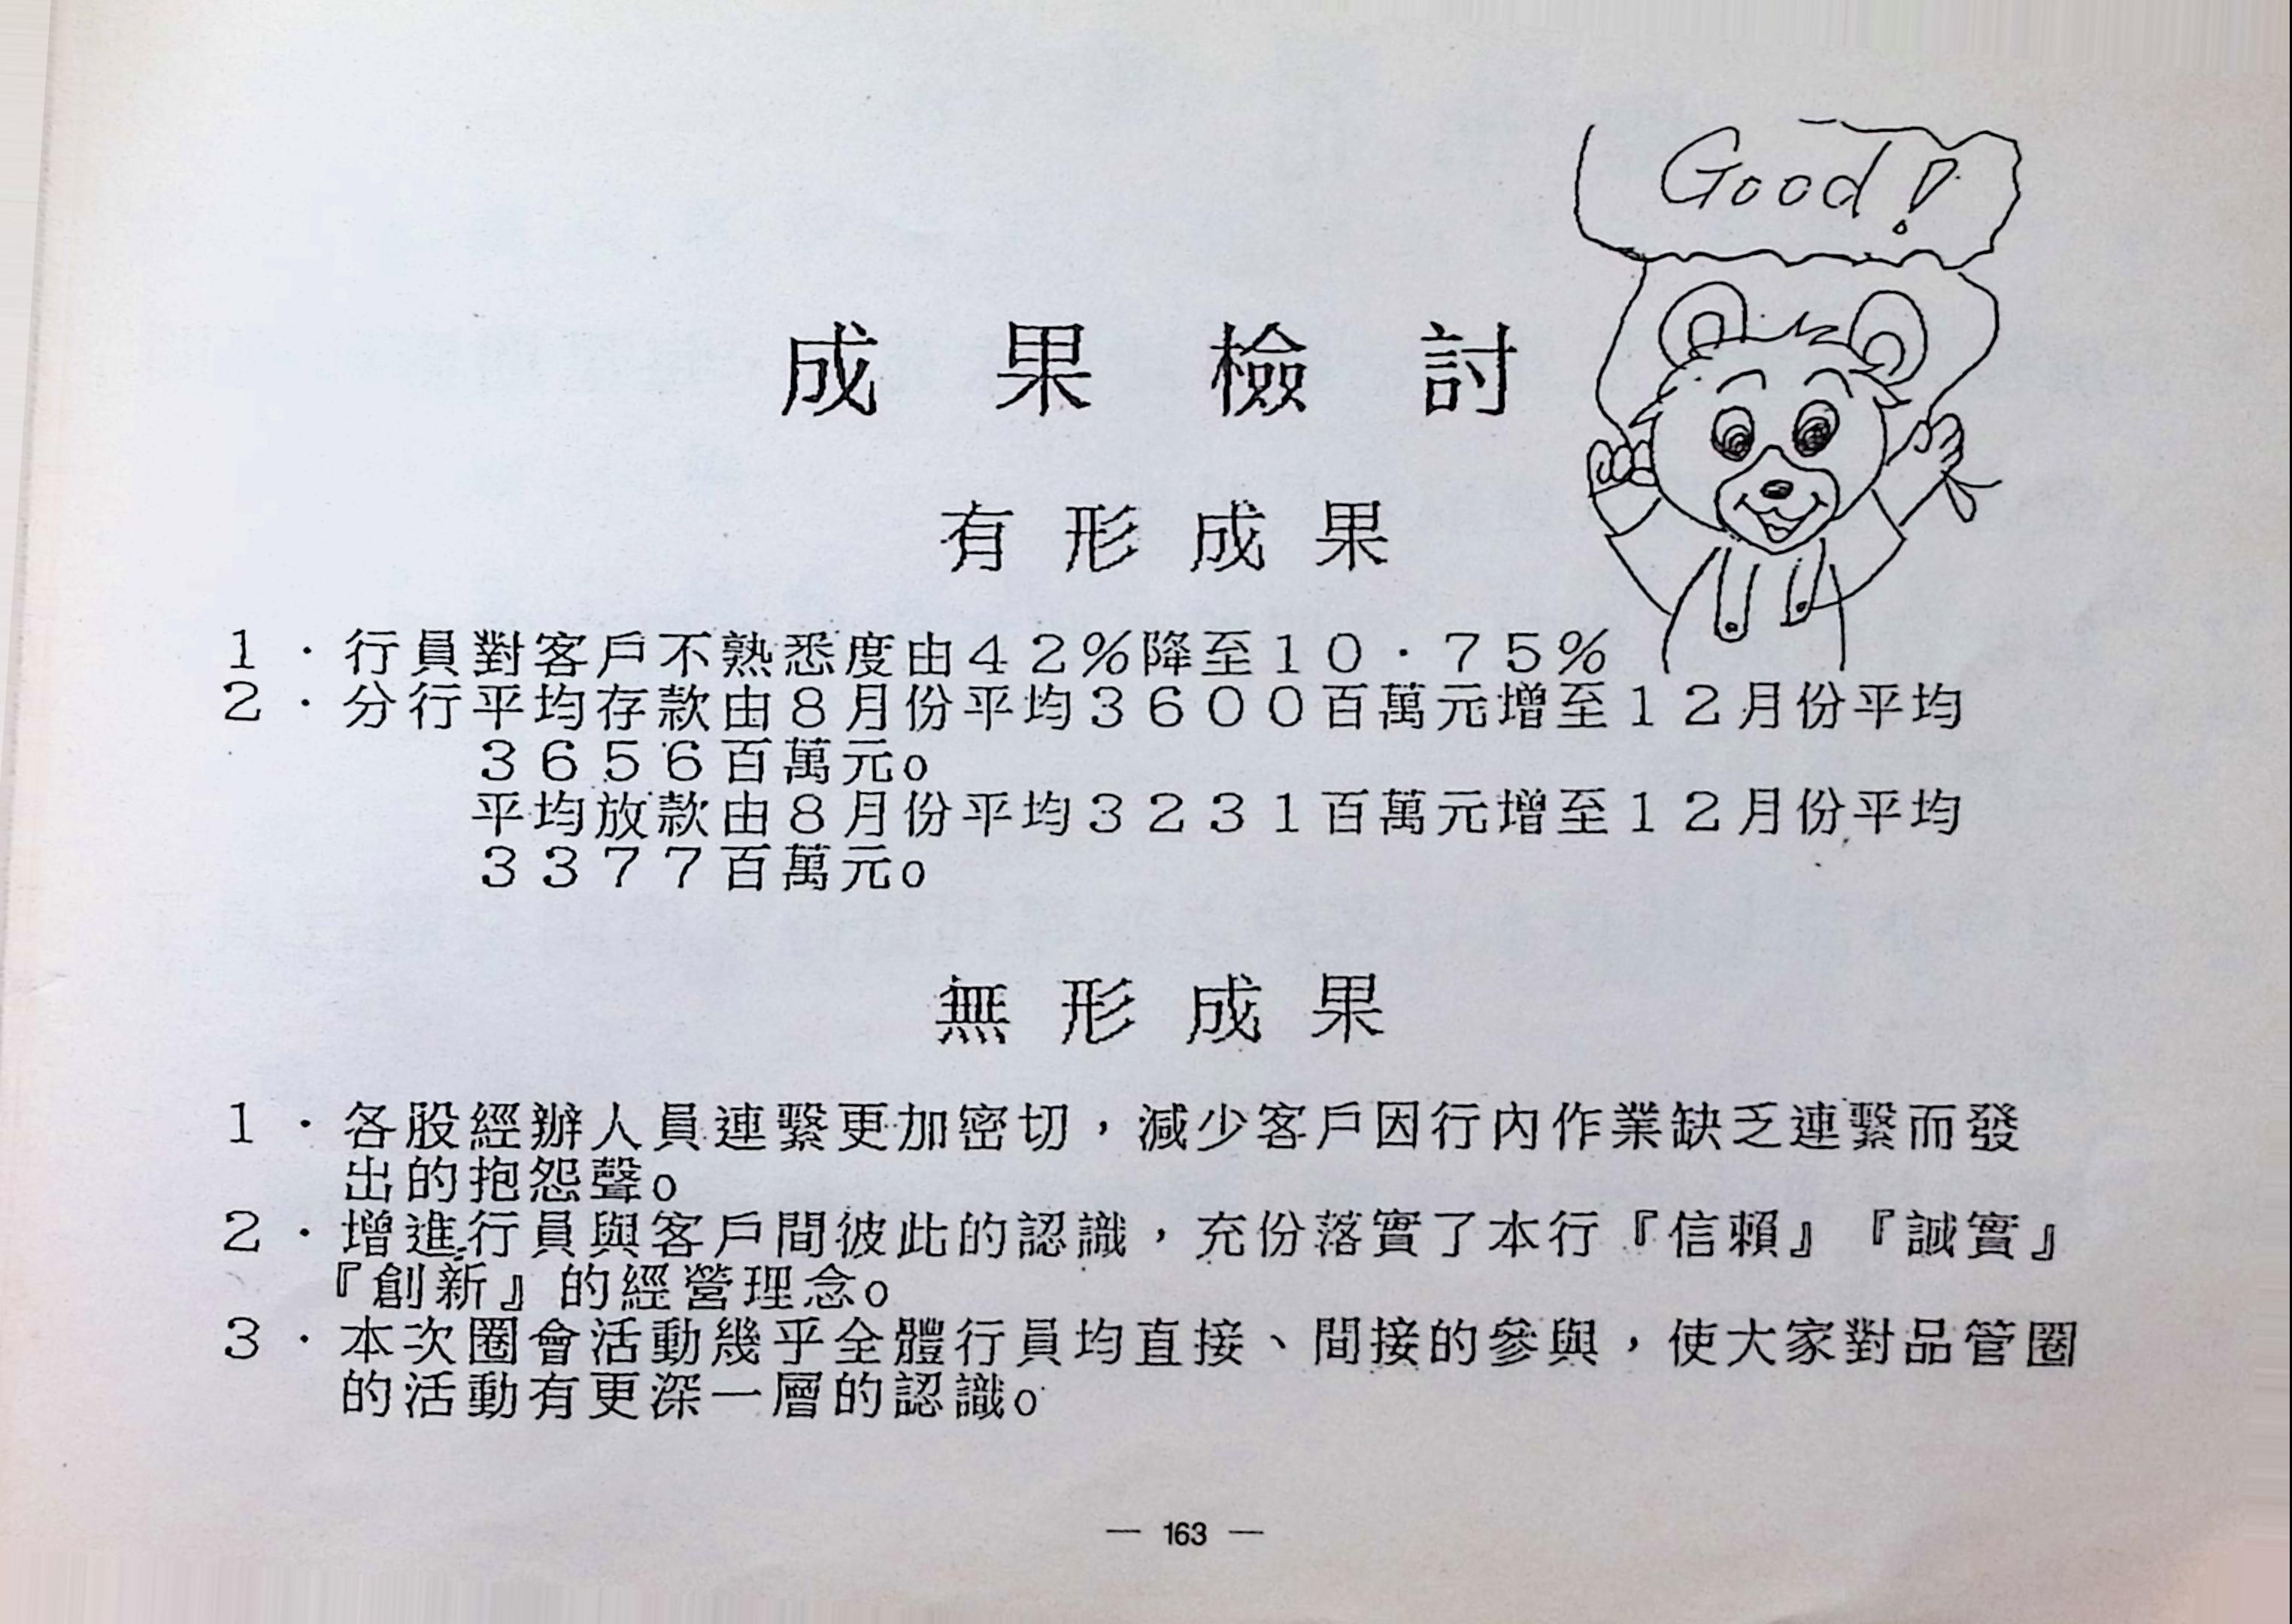 Good!
成果檢討
有形成果
1．行員對客戶不熟悉度由42%降至10．75%
2．分行平均存款由8月份平均3600百萬元增至12月份平均
3656百萬元。
平均放款由8月份平均3231百萬元增至12月份平均
3377百萬元。
無形成果
1．各股經辦人員連繫更加密切，減少客戶因行內作業缺乏連繫而發
出的抱怨聲。
2．增進行員與客戶間彼此的認識，充份落實了本行『信賴』『誠實』
『創新』的經營理念。
3．本次圈會活動幾乎全體行員均直接、間接的參與，使大家對品管圈
的活動有更深一層的認識。
— 163 —